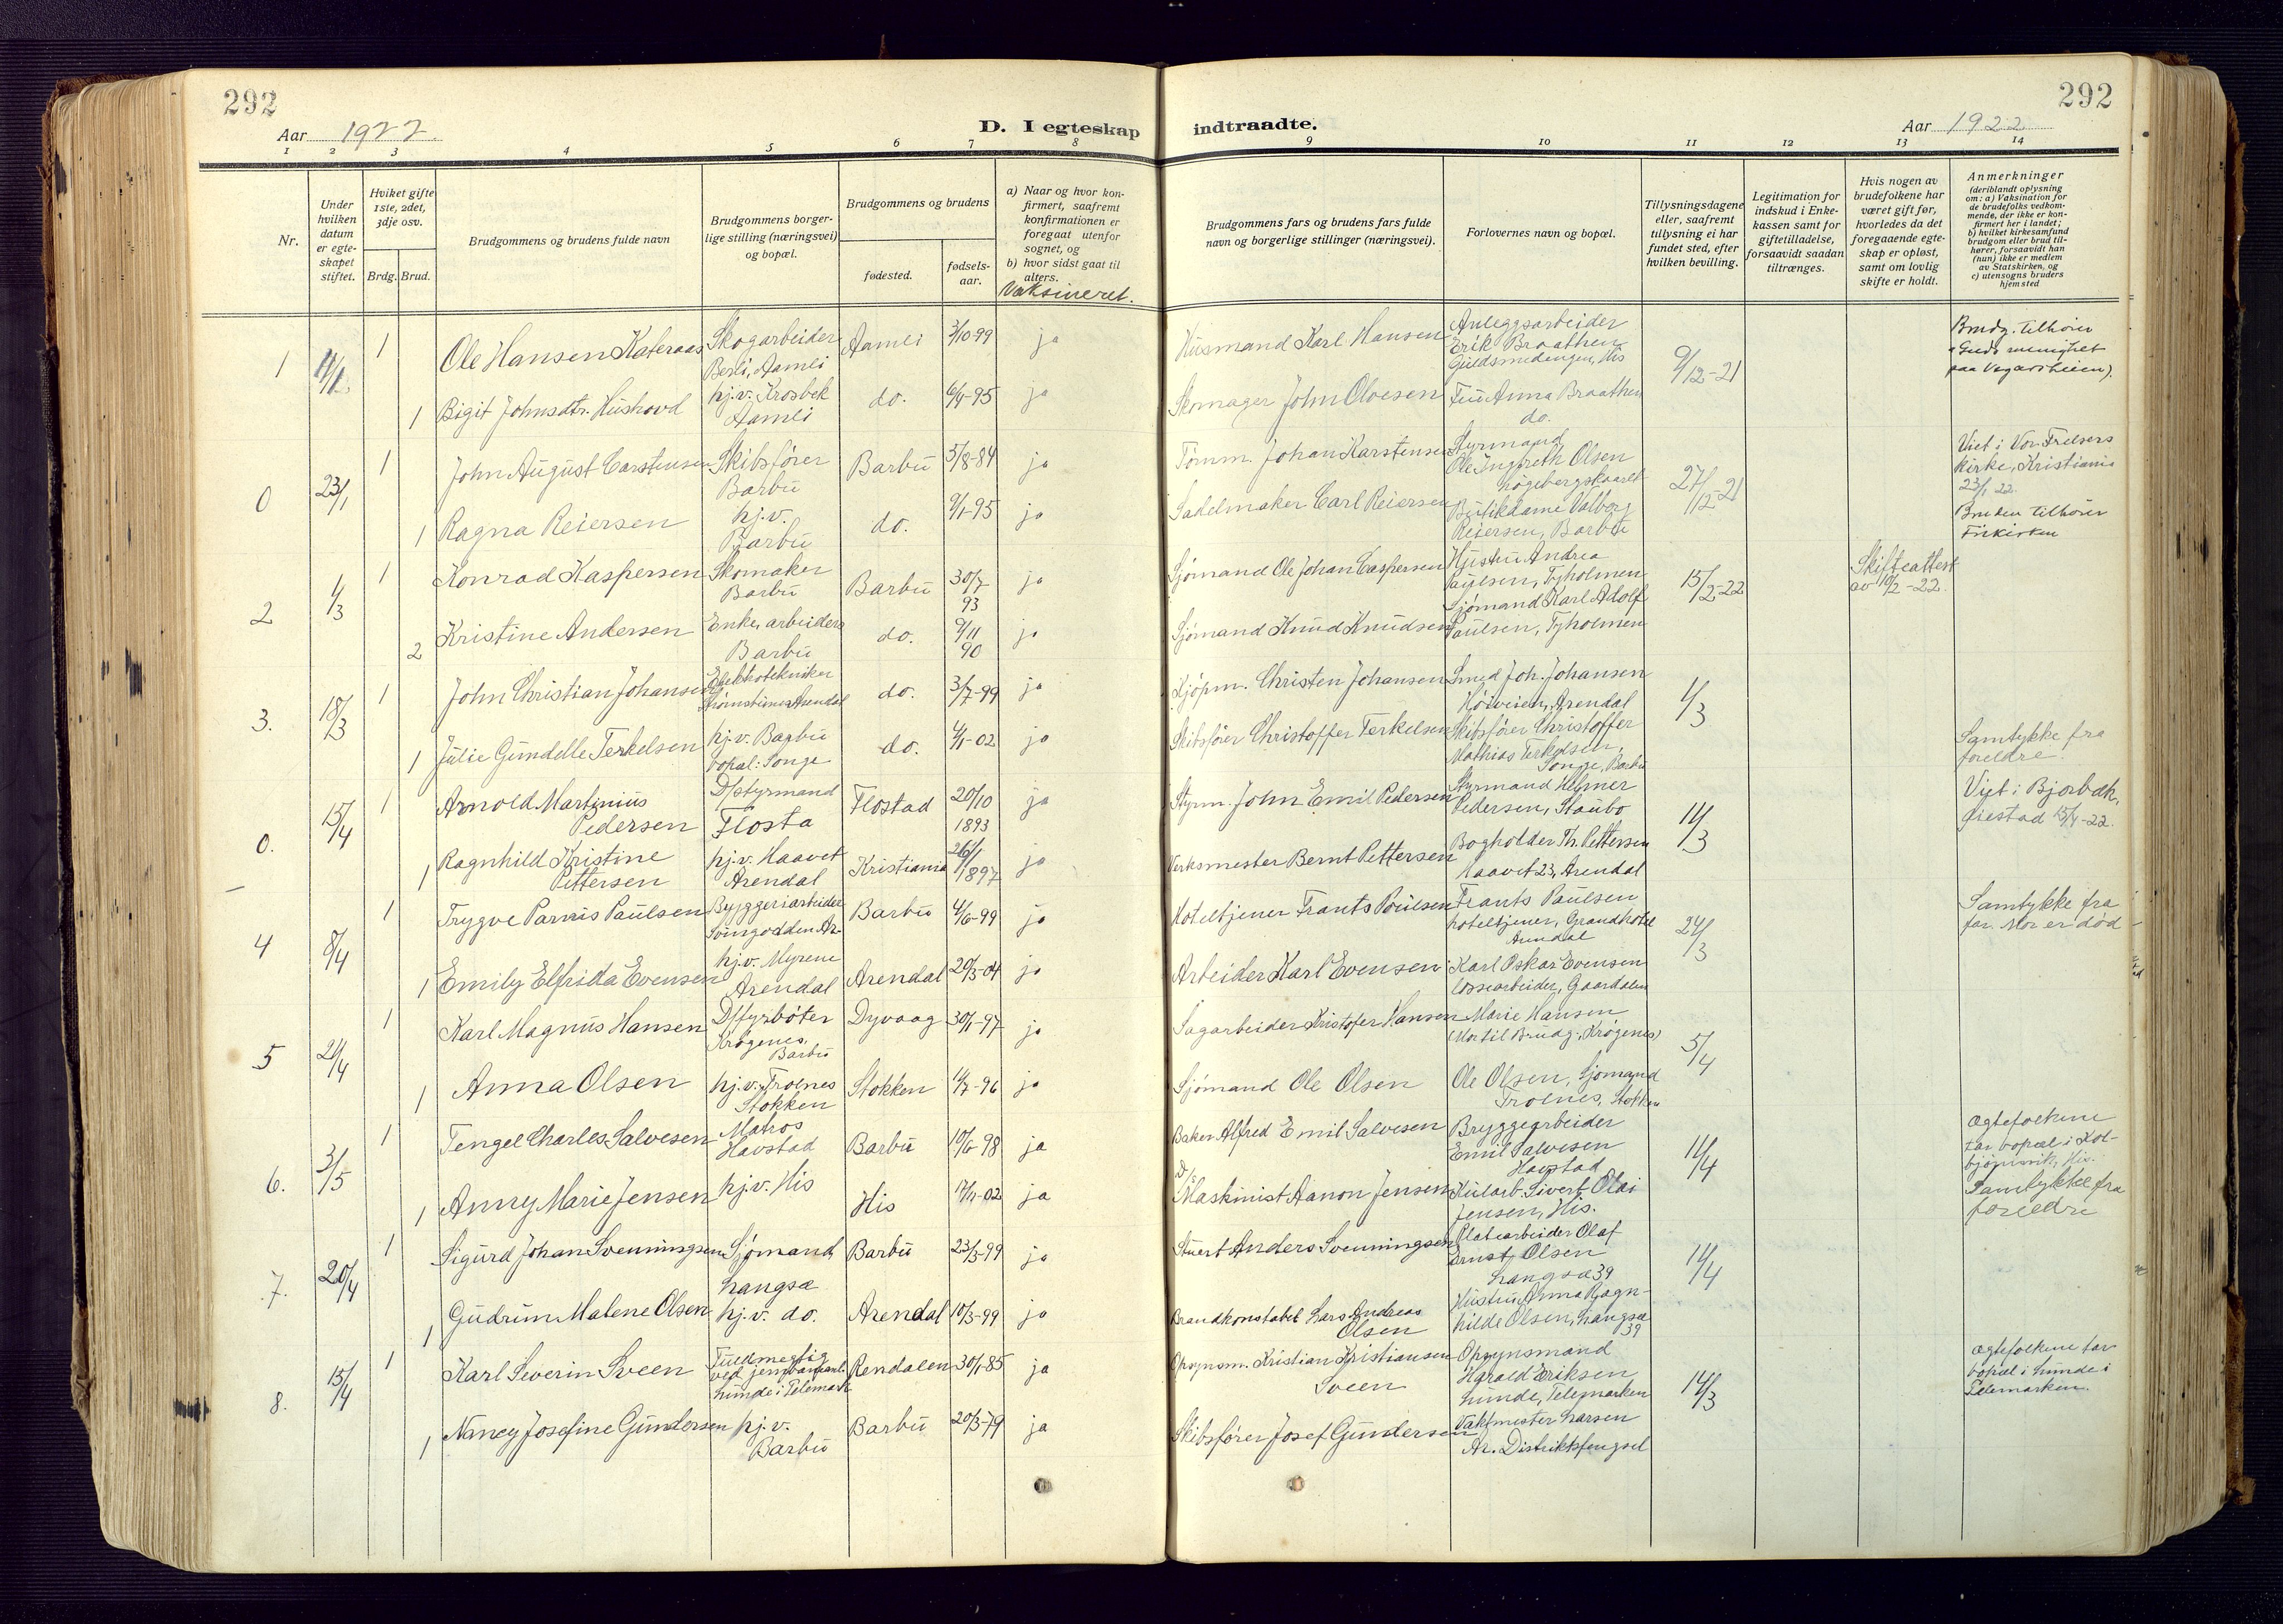 292
Aar 1922
D. I egteskap
1
2
3
4
5
6
7
8
Nr.
Under
hvilken
datum
er egte-
skapet
stiftet.
Hvilket gifte
1ste, 2det,
3dje osv.
Brdg.
Brud.
Brudgommens og brudens fulde navn
Brudgommens borger-
lige stilling (næringsvei)
og bopæl.
Brudgommens og brudens
fødested.
fødsels-
aar.
a) Naar og hvor kon-
firmert, saafremt
konfirmationen er
foregaat utenfor
sognet, og
b) hvor sidst gaat til
alters.
Vaksineret.
292
indtraadte.
Aar 1922
9
10
11
12
13
14
Brudgommens fars og brudens fars fulde
navn og borgerlige stillinger (næringsvei).
Forlovernes navn og bopæl.
Tillysningsdagene
eller, saafremt
tillysning ei har
fundet sted, efter
hvilken bevilling.
Legitimation for
indskud i Enke-
kassen samt for
giftetilladelse,
forsaavidt saadan
tiltrænges.
Hvis nogen av
brudefolkene har
været gift før,
hvorledes da det
foregaaende egte-
skap er opløst,
samt om lovlig
skifte er holdt.
Anmerkninger
(deriblandt oplysning
om: a) Vaksination for
de brudefolks vedkom-
mende, der ikke er kon-
firmert her i landet;
b) hvilket kirkesamfund
brudgom eller brud til-
hører, forsaavidt han
(hun) ikke er medlem
av Statskirken, og
c) utensogns bruders
hjemsted
1
1
Ole Hansen Kateraas
Skogarbeider
Berli, Aamli
Aamli
3/10-99
ja
Husmand Karl Hansen
Anleggsarbeider
Erik Braathen
Guldsmedengen, His
9/12-21
Brudg. tilhører
paa Vegarsheien).
1
Bigit Johnsdtr. Hushovd
hj.v. Krosbek
Aamli
do.
6/4-95
ja
Skomager John Olvesen
Fru Anna Braathen
do.
0
23/1
1
John August Carstensen
Skibsfører
Barbu
Barbu
5/8-84
ja
Tømm. Johan Karstensen
Styrmand
Ole Ingbreth Olsen
27/12-21
Viet i Vor Frelsers
kirke, Kristiania
23/1 22.
1
Ragna Reiersen
hj.v.
Barbu
do.
9/1-95
ja
Sadelmaker Carl Reiersen
Butikdame Valborg
Reiersen, Barbu
Bruden tilhører
Frikirken
2
1/3
1
Konrad Kaspersen
Skomaker
Barbu
Barbu
30/7
93
ja
Sjømand Ole Johan Caspersen
Hustru Andrea
Paulsen, Tyholmen
15/2-22
Skifteattest
av 10/2-22.
2
Kristine Andersen
Enke, arbeiders
Barbu
do.
9/11
90
ja
Sjømand Knud Knudsen
Sjømand Karl Adolf
Paulsen, Tyholmen
3.
18/3
1
John Christian Johansen
Elektrotekniker
do.
3/7-99
ja
Kjøpm. Christen Johansen
Smed Joh. Johansen
Høiveien, Arendal
1/3
1
Julie Gundelle Terkelsen
hj.v. Barbu
bopæl: Songe
do.
4/1-02
ja
Skibsfører Christoffer Terkelsen
Skibsfører Christoffer
Mathias Terkelsen,
Songe, Barbu
Samtykke fra
foreldre.
0.
15/4
1
Arnold Martinius
Pedersen
D/styrmand
Flosta
Flostad
20/10
1893
ja
Styrm. John Emil Pedersen
Styrmand Helmer
Pedersen, Staubo
11/3
Viet i Bjorbæk,
Øiestad 15/4-22.
1
Ragnhild Kristine
Pettersen
hj.v. Haavet
Arendal
Kristiania
26/1
1897
ja
Verksmester Bernt Pettersen
Bogholder Th. Pettersen
Haavet 23, Arendal
4
8/4
1
Trygve Parnis Paulsen
Byggeriarbeider
Svingodden Ar.
Barbu
4/6-99
ja
Hoteltjener Frants Poulsen
Frants Paulsen
hoteltjener, Grandhotel
Arendal
24/3
Samtykke fra
far. Mor er død
1
Emily Elfrida Evensen
hj.v. Myrene
Arendal
Arendal
20/3-04
ja
Arbeider Karl Evensen
Karl Oskar Evensen
lossearbeider, Gaardalen
5
1
Karl Magnus Hansen
D/fyrbøter
Krøgenes,
Barbu
Dyvaag
30/1-97
ja
Sagarbeider Kristofer Hansen
Marie Hansen
(Mor til Brudg.; Krøgenes)
5/4
1
Anna Olsen
hj.v. Trolnes
Stokken
Stokken
ja
Sjømand Ole Olsen
Ole Olsen, Sjømand
Trolnes, Stokken
6.
3/5
1
Tengel Charles Salvesen
Matros
Havstad
Barbu
10/6-98
ja
Baker Alfred Emil Salvesen
Bryggearbeider
Emil Salvesen
Havstad
11/4
Ægtefolkene
tar bopæl i Kol-
bjørnsvik, His.
1
Anny Marie Jensen
hj.v. His
His
ja
D/s
Maskinist Aanon Jensen
Kularb. Sivert Olai
Jensen, His.
Samtykke fra
foreldre
7.
20/4
1
Sigurd Johan Svenningsen
Sjømand
Langsæ
Barbu
23/3-99
ja
Stuert Anders Svenningsen
Platearbeider Olaf
Ernst Olsen
Langsæ 39
14/4
1
Gudrun Malene Olsen
hj.v. do.
Arendal
10/3-99
ja
Brandkonstabel Lars Andreas
Olsen
Hustru Anna Ragn-
hilde Olsen, Langsæ
39
8.
15/4
1
Karl Severin Sveen
Fuldmegtig
ved jernbaneanl.
Lunde i Telemark
Rendalen
30/1-85
ja
Opsynsm. Kristian Kristiansen
Sveen
Opsynsmand
Harald Eriksen
Lunde, Telemarken
14/3
Ægtefolkene tar
bopæl i Lunde i
Telemarken.
1
Nancy Josefine Gundersen
hj.v.
Barbu
Barbu
20/3-79
ja
Skibsfører Josef Gundersen
Vaktmester Larsen
Ar. Distriktsfengsel